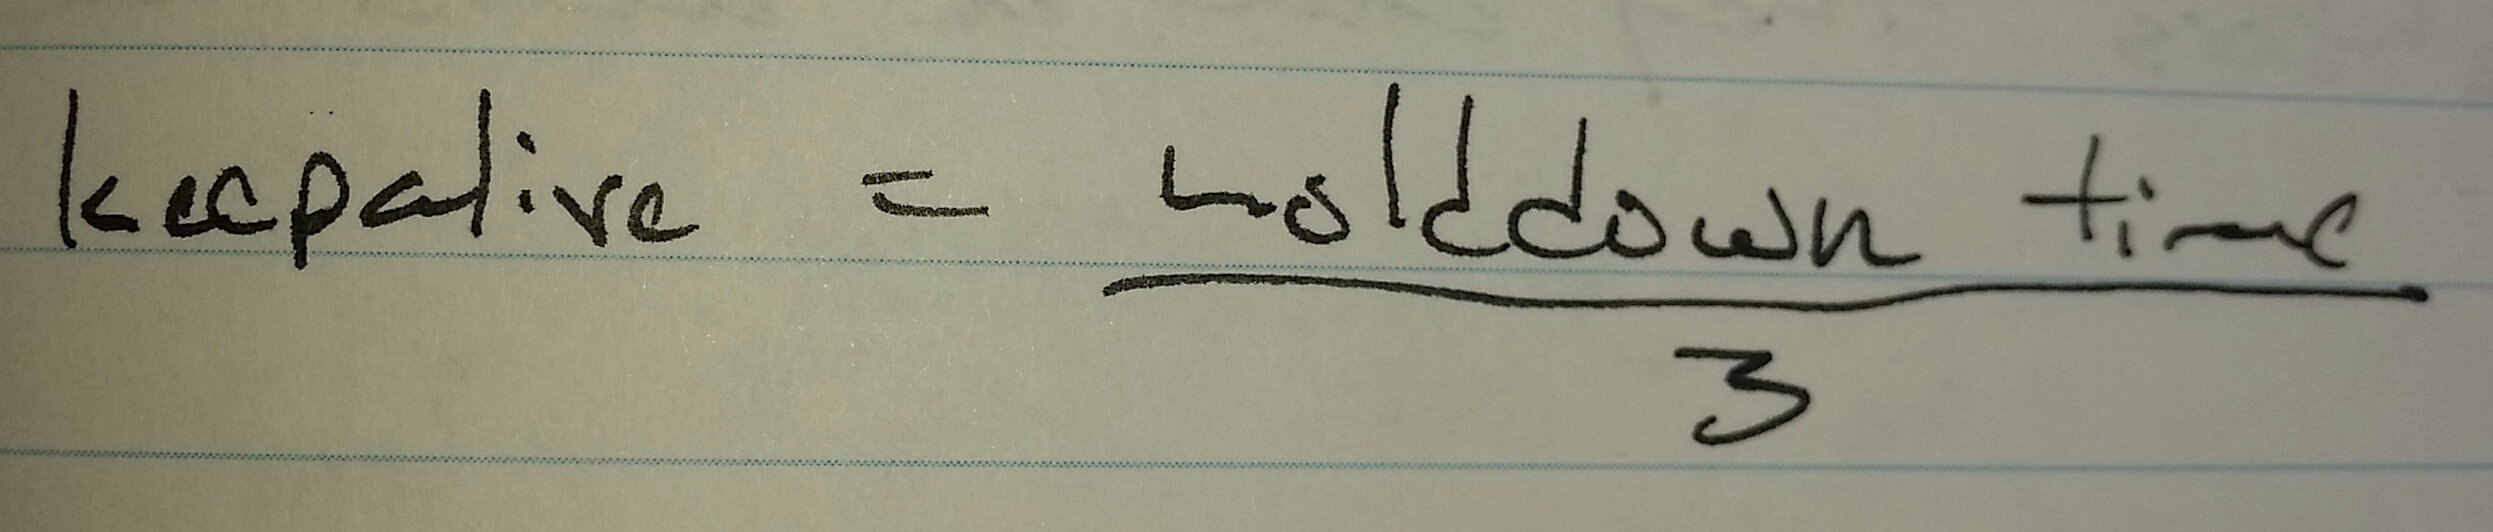 keepalive = holddown time
3